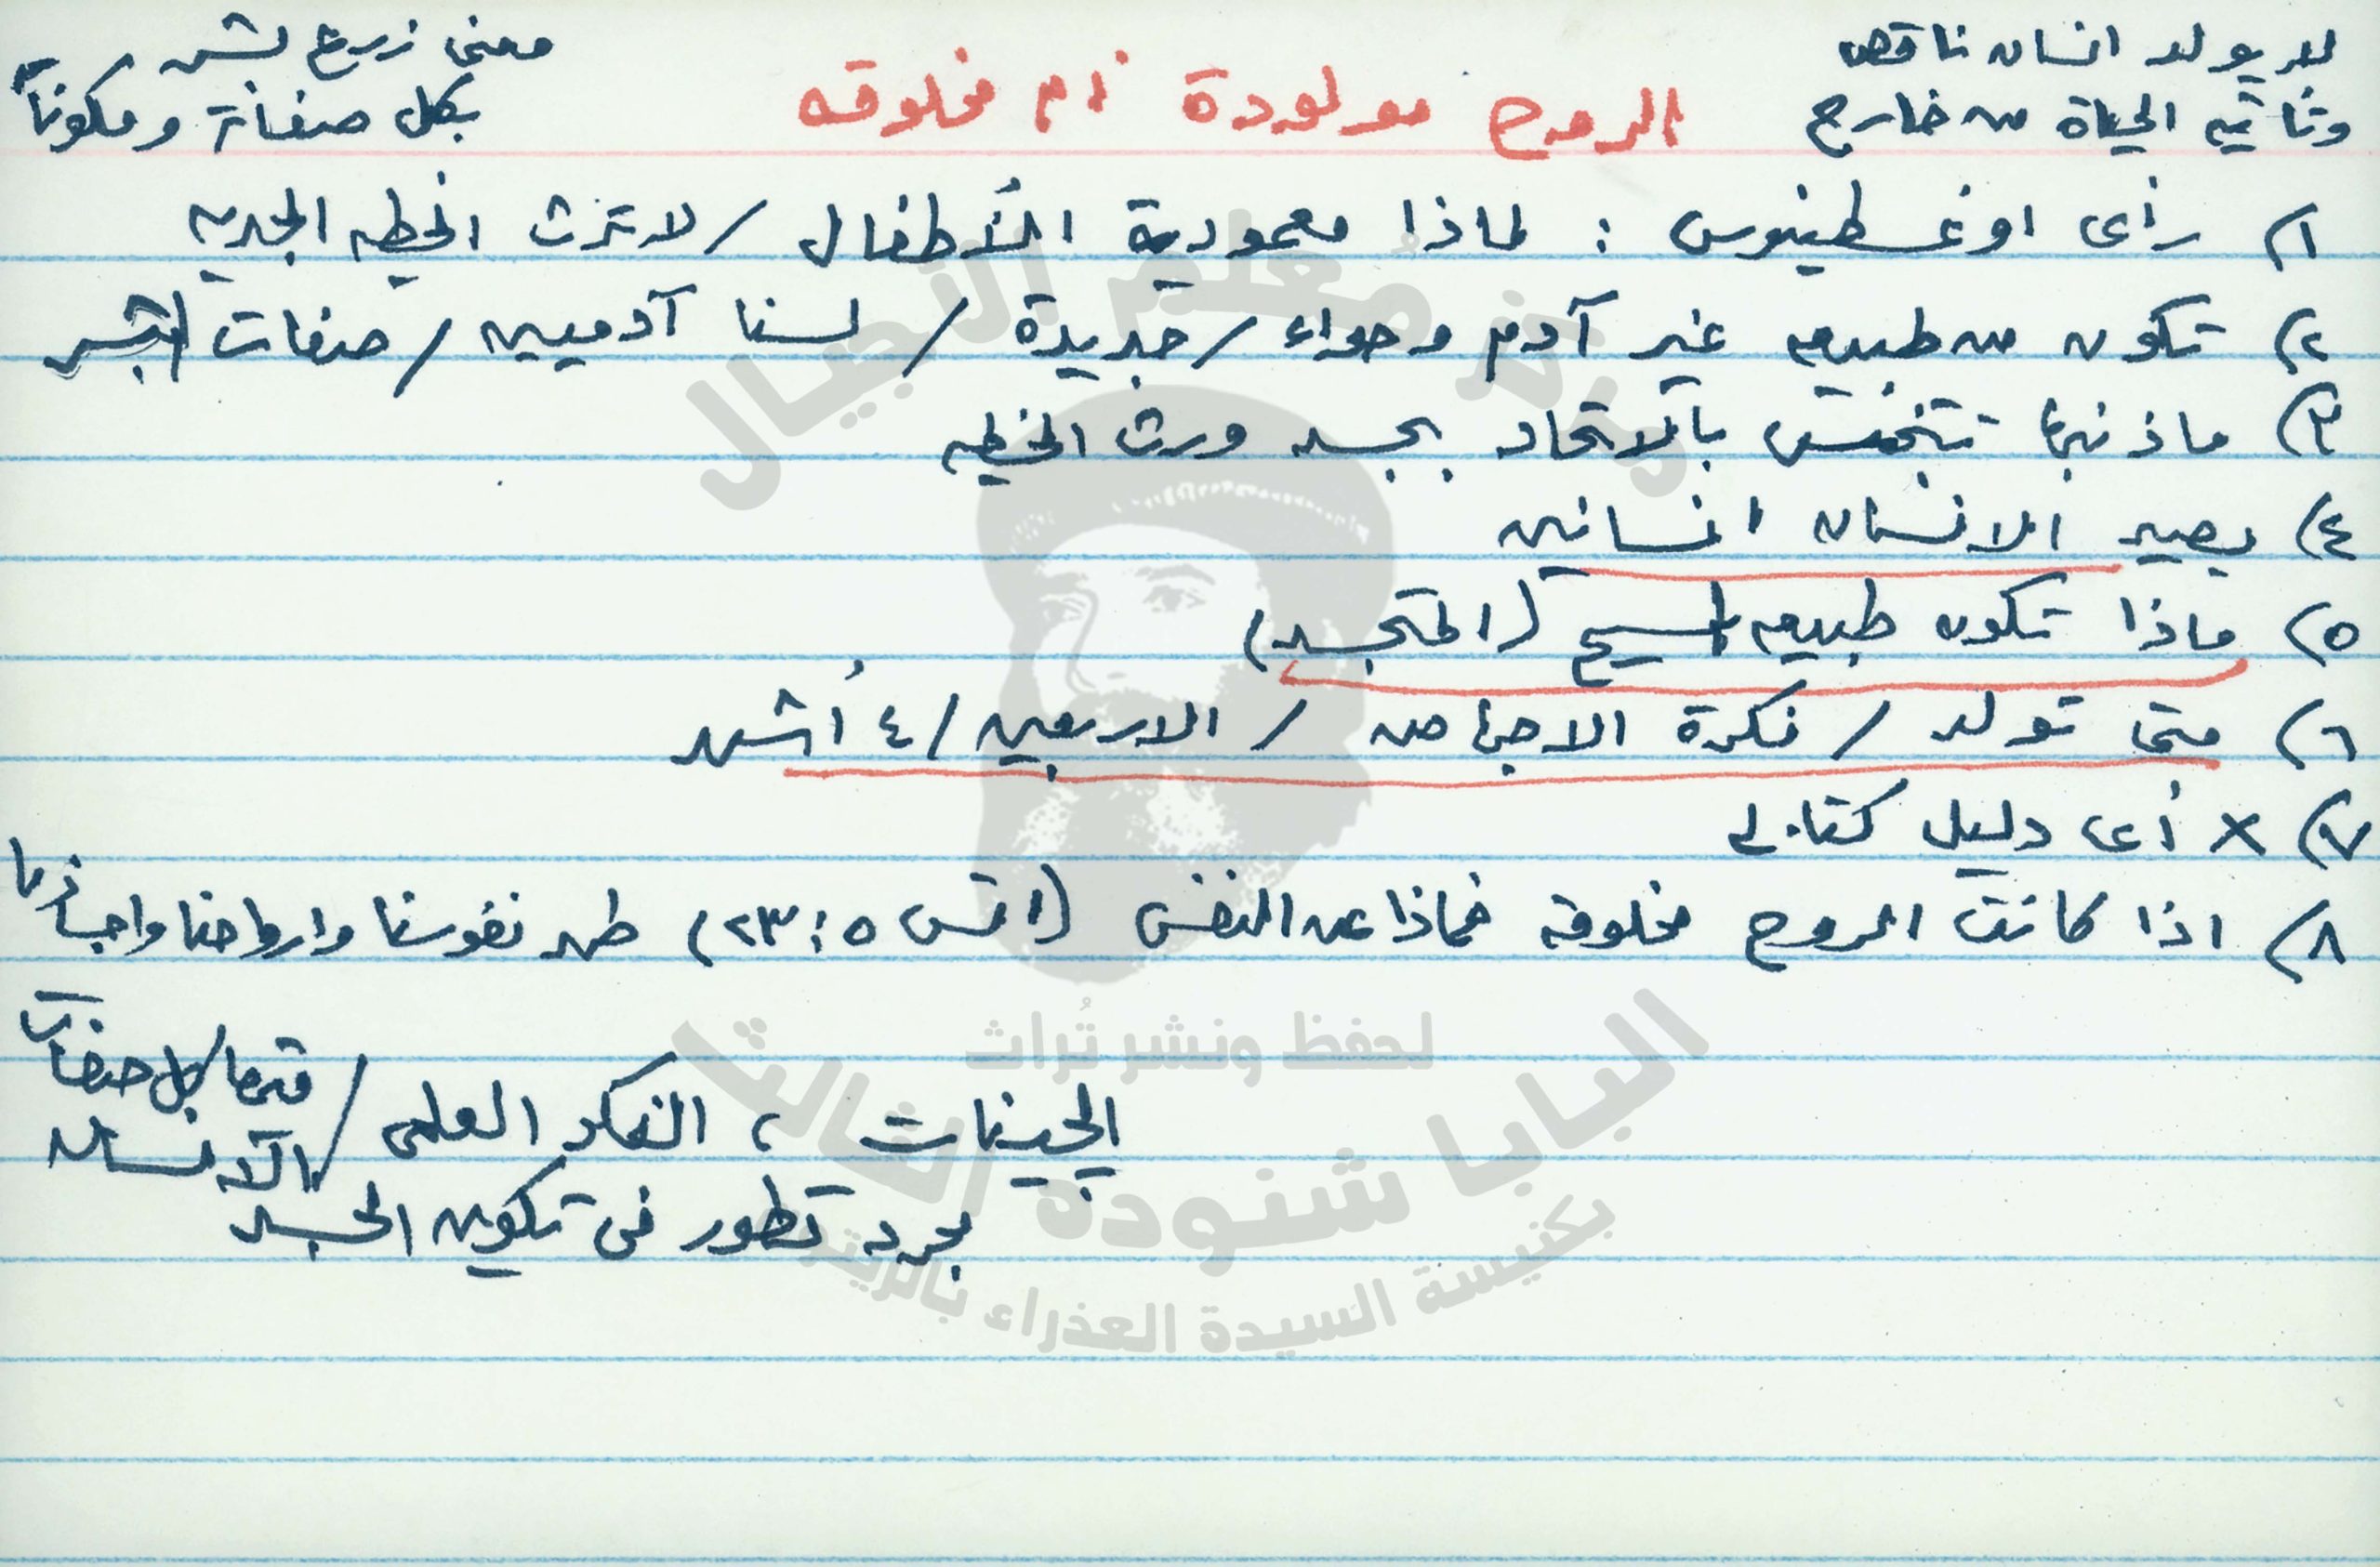 لا يولد انسان ناقص
وتأتيه الحياة من خارج
الروح مولودة أم مخلوقه
معنى زرع بشر
بكل صفاته ومكوناته
١) رأى اوغسطينوس : لماذا معمودية الأطفال / لا ترث الخطيه الجديه
٢) تكون من طبيعه غير آدم وحواء / جديدة / لسنا آدميين / صفات البشر
٣) ما ذنبها تتنجس بالاتحاد بجسد ورث الخطيه
٤) يصير الانسان انسانين
٥) ماذا تكون طبيعه المسيح (المتجسد)
٦) متى تولد / فكرة الاجهاض / الاربعين / ٤ أشهر
٧) × أى دليل كتابى
٨) اذا كانت الروح مخلوقه فماذا عن النفس (١تس ٥ : ٢٣) طهر نفوسنا وارواحنا واجسادنا
الجينات ، الفكر العلمى / فيها كل صفات
الانسان
مجرد تطور فى تكوين الجسد
مركز مُعلم الأجيال
لحفظ ونشر تُراث
البابا شنوده الثالث
بكنيسة السيدة العذراء بالزيتون